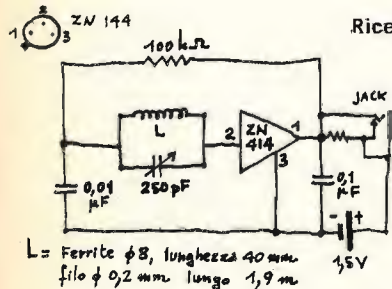 2 ZN 144
1 3
Rice
100 kΩ
JACK
L
2 ZN 414 1
3
250 pF
0,01 µF
0,1 µF
- +
1,5V
L = Ferrite φ8, lunghezza 40 mm
filo φ 0,2 mm lungo 1,9 m